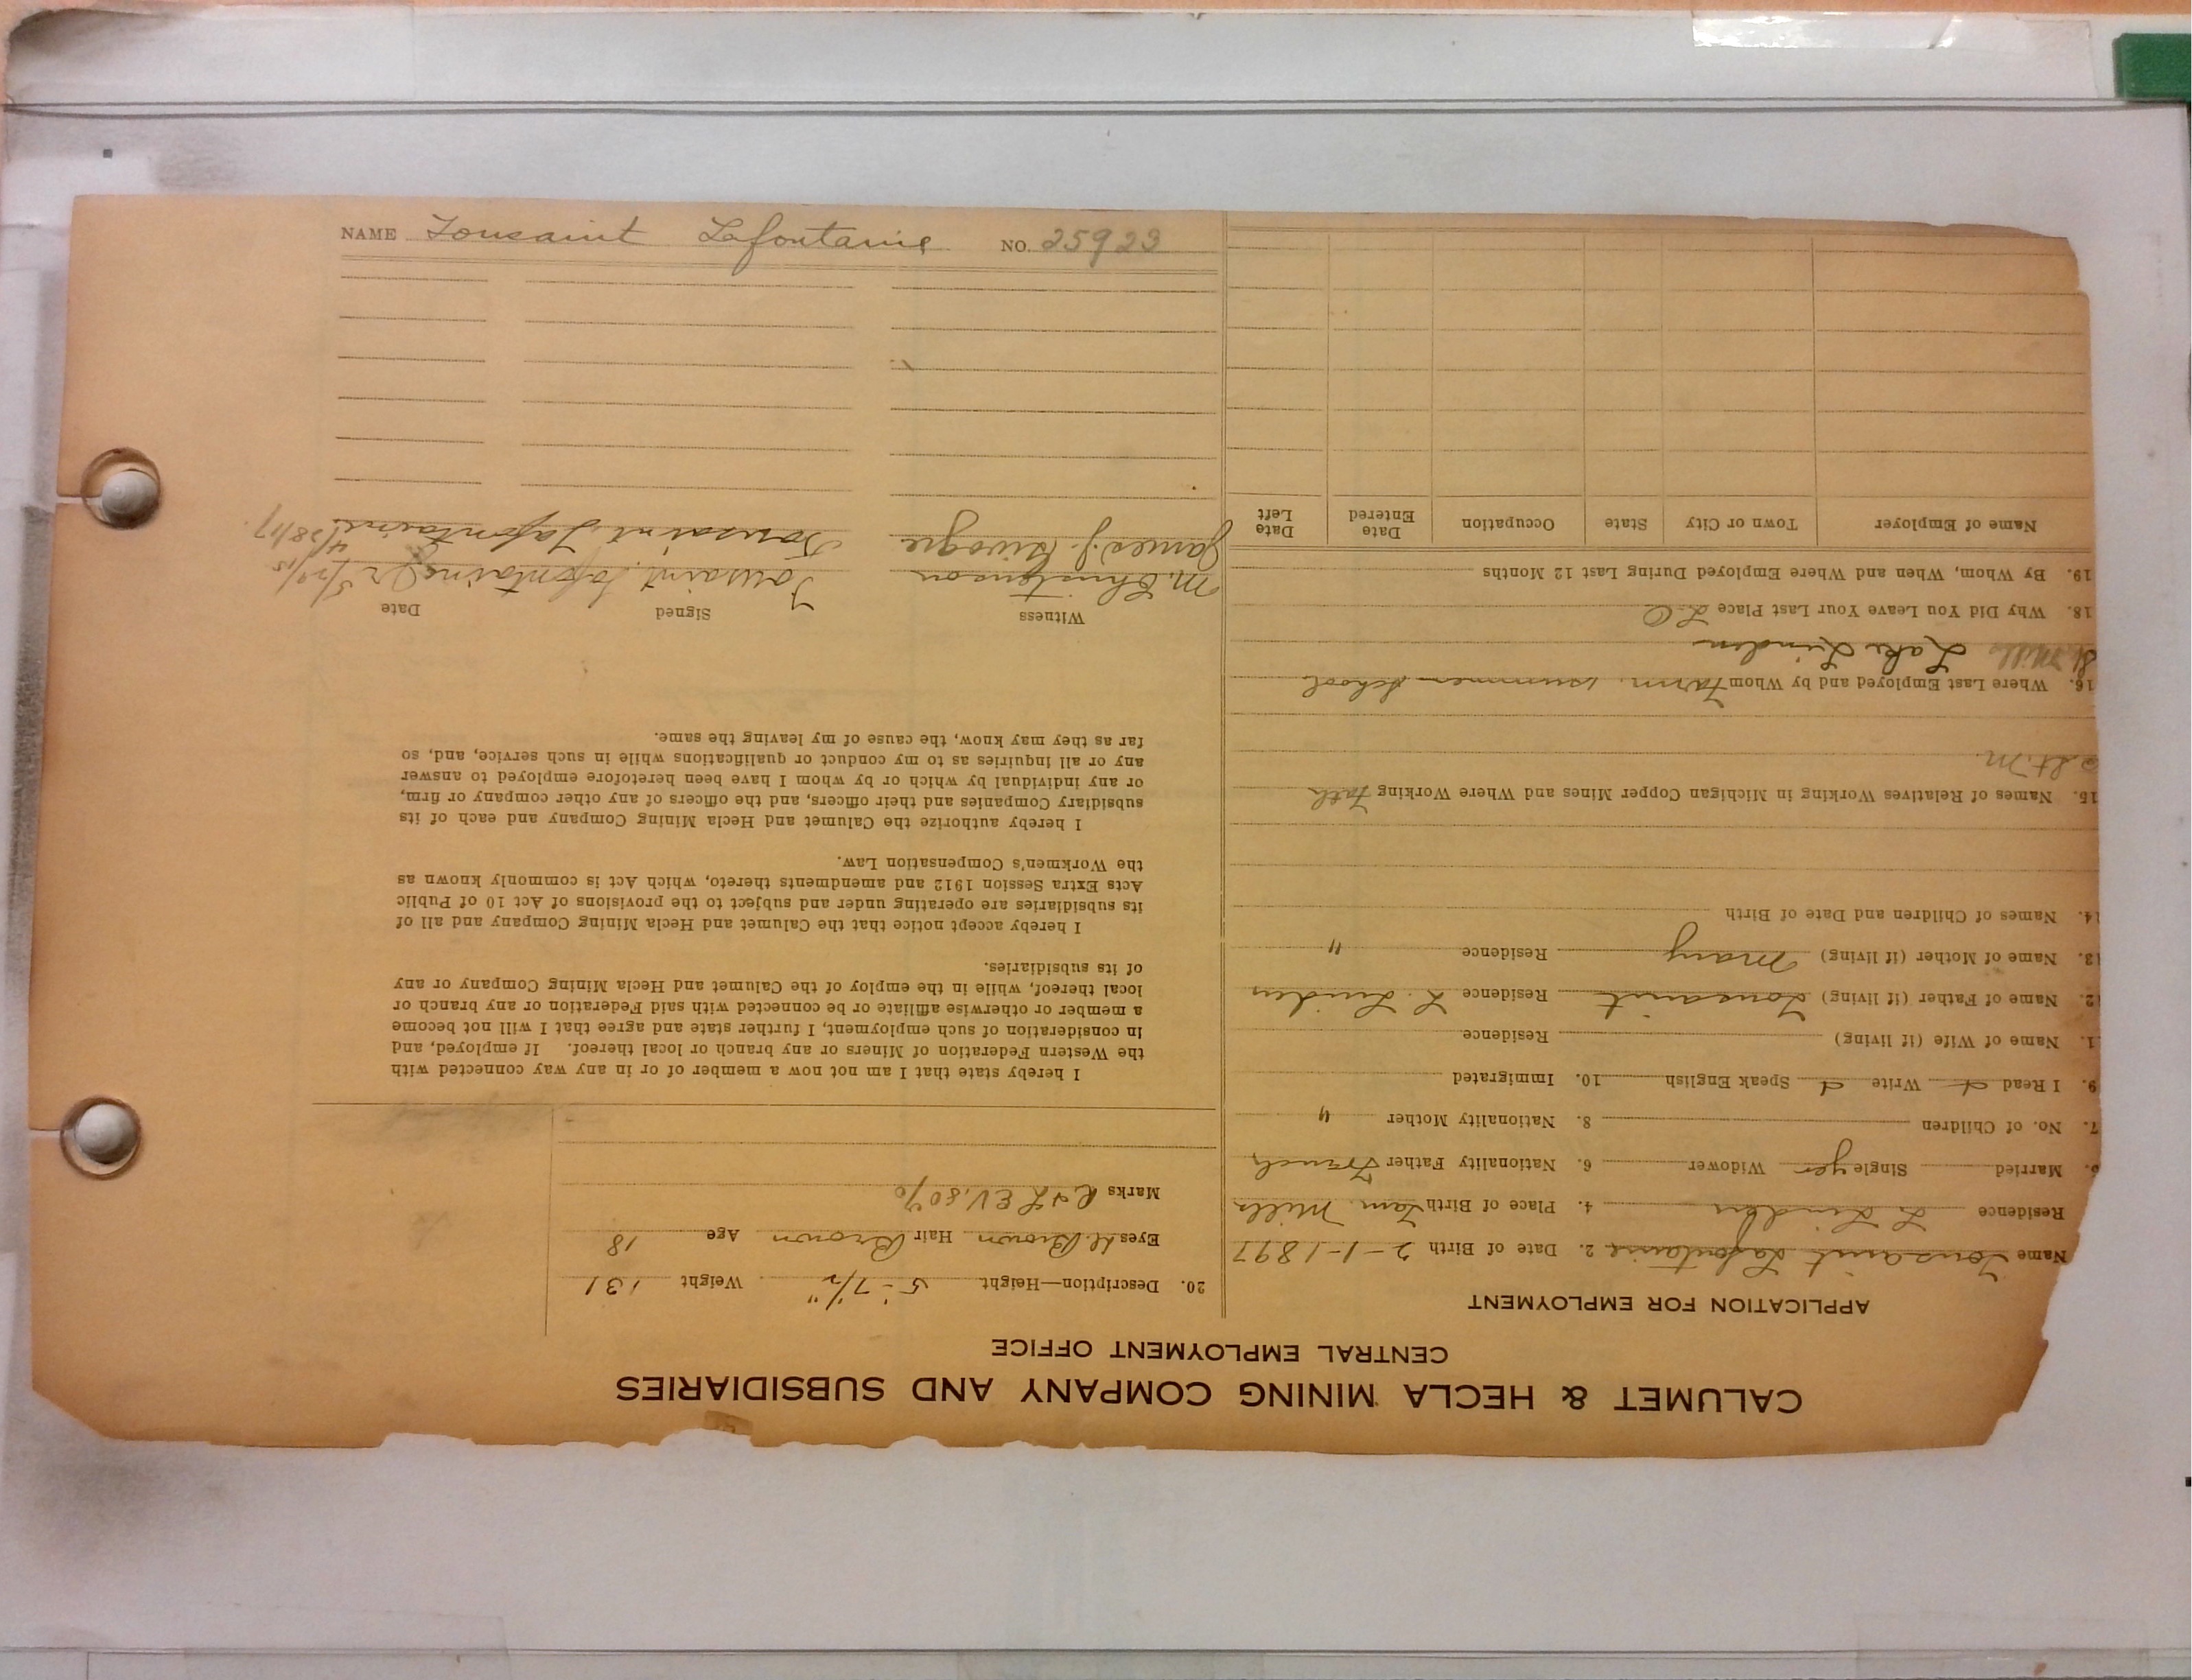 CALUMET & HECLA MINING COMPANY AND SUBSIDIARIES
CENTRAL EMPLOYMENT OFFICE
APPLICATION FOR EMPLOYMENT
Name Tousaint Lafontaine 2. Date of Birth 2-1-1897
Residence L Linden 4. Place of Birth Tam. Mills
5. Married Single yes Widower 6. Nationality Father French
7. No. of Children 8. Nationality Mother "
9. I Read Write Speak English 10. Immigrated
1. Name of Wife (if living) Residence
2. Name of Father (if living) Tousaint Residence L. Linden
3. Name of Mother (if living) Mary Residence "
14. Names of Children and Date of Birth
15. Names of Relatives Working in Michigan Copper Mines and Where Working Fath
St. M.
16. Where Last Employed and by Whom Farm. summer - school
St. Mills Lake Linden
18. Why Did You Leave Your Last Place LO
19. By Whom, When and Where Employed During Last 12 Months
Name of Employer Town or City State Occupation Date Entered Date Left
20. Description—Height 5-7½" Weight 131
Eyes H. Brown Hair Brown Age 18
Marks R & L EV. 80%
I hereby state that I am not now a member of or in any way connected with
the Western Federation of Miners or any branch or local thereof. If employed, and
in consideration of such employment, I further state and agree that I will not become
a member or otherwise affiliate or be connected with said Federation or any branch or
local thereof, while in the employ of the Calumet and Hecla Mining Company or any
of its subsidiaries.
I hereby accept notice that the Calumet and Hecla Mining Company and all of
its subsidiaries are operating under and subject to the provisions of Act 10 of Public
Acts Extra Session 1912 and amendments thereto, which Act is commonly known as
the Workmen's Compensation Law.
I hereby authorize the Calumet and Hecla Mining Company and each of its
subsidiary Companies and their officers, and the officers of any other company or firm,
or any individual by which or by whom I have been heretofore employed to answer
any or all inquiries as to my conduct or qualifications while in such service, and, so
far as they may know, the cause of my leaving the same.
Witness Signed Date
M. Christenson Tousaint Lafontaine Jr 5/20/15
James J. Tousaint Lafontaine 4/28/17
NAME Tousaint Lafontaine NO. 25923